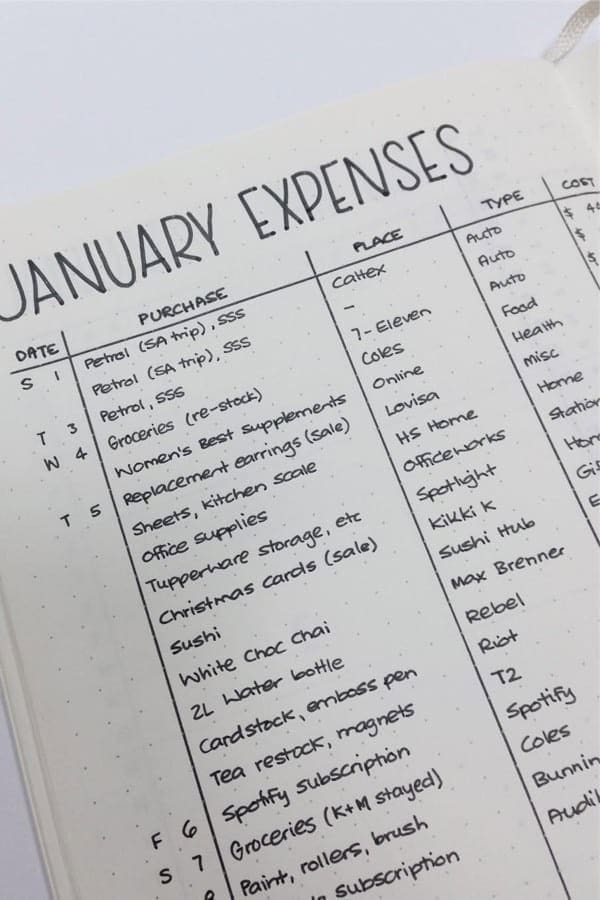 JANUARY EXPENSES
DATE PURCHASE PLACE TYPE COST
S 1 Petrol (SA trip), SSS Caltex Auto $
Petrol (SA trip), SSS – Auto $
T 3 Petrol, SSS 7-Eleven Auto $
W 4 Groceries (re-stock) Coles Food
Women's Best Supplements Online Health
T 5 Replacement earrings (sale) Lovisa Misc
Sheets, kitchen scale HS Home Home
Office supplies Officeworks Station
Tupperware storage, etc Spotlight
Christmas cards (sale) Kikki K
Sushi Sushi Hub
White Choc Chai Max Brenner
2L Water bottle Rebel
Cardstock, emboss pen Riot
Tea restock, magnets T2
F 6 Spotify subscription Spotify
S 7 Groceries (K+M stayed) Coles
Paint, rollers, brush Bunnin
subscription